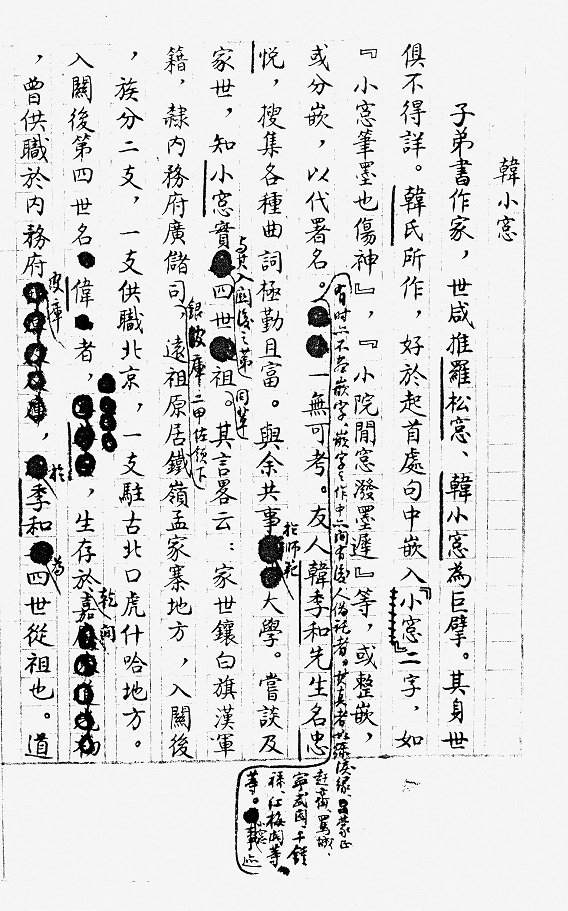 韓小窓
子弟書作家，世咸推羅松窓、韓小窓為巨擘。其身世
俱不得詳。韓氏所作，好於起首處句中嵌入『小窓』二字，如
『小窓筆墨也傷神』，『小院閒窓潑墨遲』等，或整嵌，
或分嵌，以代署名。
有時亦不嵌字。嵌字之作中亦間有後人偽託者。
等。
一無可考。友人韓季和先生名忠
悅，搜集各種曲詞極勤且富。與余共事
於師範
大學。嘗談及
家世，知小窓實
與其入關後之第
四世
同輩
祖。其言畧云：家世鑲白旗漢軍
籍，隸內務府廣儲司
銀皮庫二甲佐領下
，遠祖原居鐵嶺孟家寨地方，入關後
，族分二支，一支供職北京，一支駐古北口虎什哈地方。
入關後第四世名
偉
者，
，生存於
乾
嘉
間
，曾供職於內務府
皮庫
，
於
季和
為
四世從祖也。道